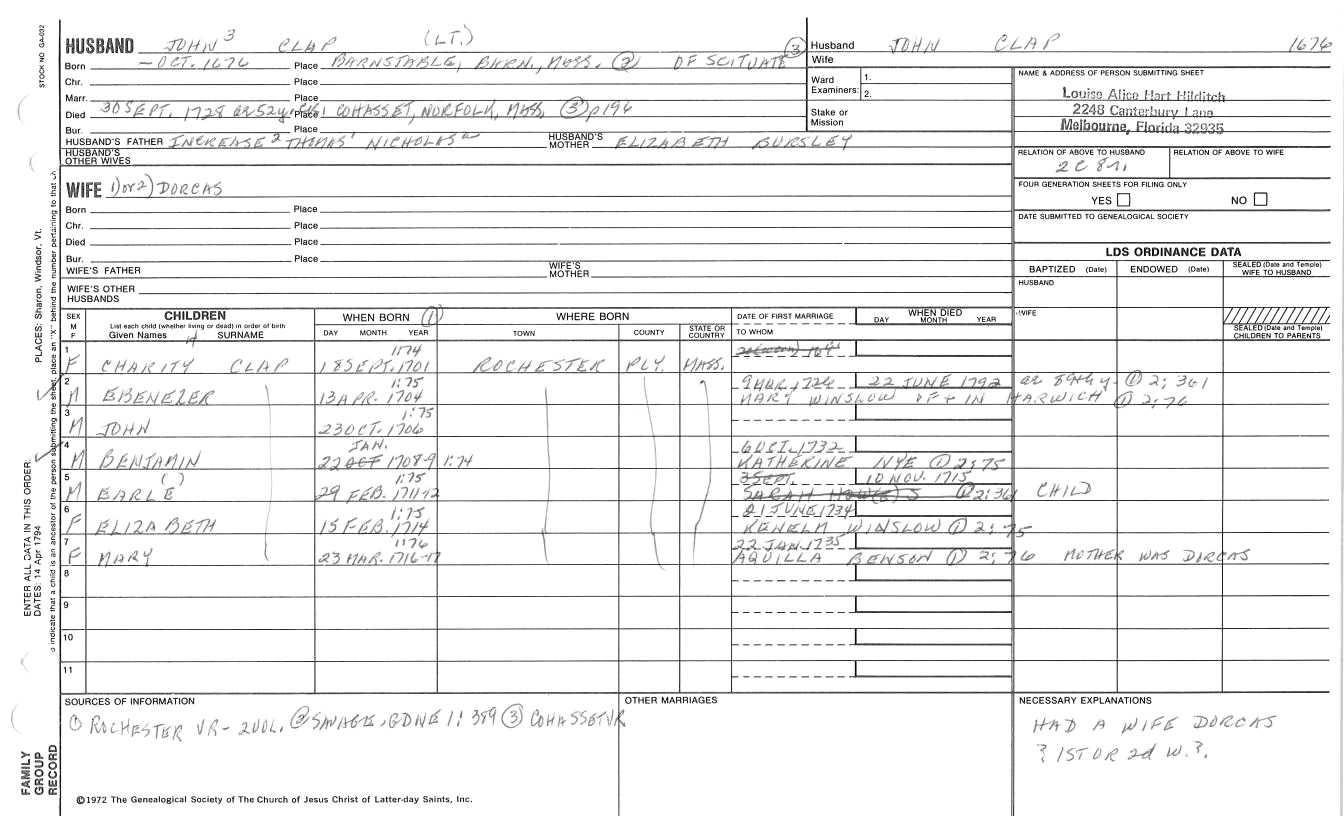 STOCK NO GA-032
HUSBAND JOHN 3 CLAP (LT.)
Born — OCT. 1676 Place BARNSTABLE, BARN., MASS. ② OF SCITUATE ③
Chr. Place
Marr. Place
Died 30 SEPT. 1728 ae 52y. Place COHASSET, NORFOLK, MASS, ③ p196
Bur. Place
HUSBAND'S FATHER INCREASE 2 THOMAS 1 NICHOLAS a HUSBAND'S MOTHER ELIZABETH BURSLEY
HUSBAND'S OTHER WIVES
Husband JOHN CLAP 1676
Wife
Ward Examiners: 1.
2.
Stake or Mission
NAME & ADDRESS OF PERSON SUBMITTING SHEET
Louise Alice Hart Hilditch
2248 Canterbury Lane
Melbourne, Florida 32935
RELATION OF ABOVE TO HUSBAND RELATION OF ABOVE TO WIFE
2C 8r.
FOUR GENERATION SHEETS FOR FILING ONLY
YES NO
DATE SUBMITTED TO GENEALOGICAL SOCIETY
WIFE 1) or 2) DORCAS
Born Place
Chr. Place
Died Place
Bur. Place
WIFE'S FATHER WIFE'S MOTHER
WIFE'S OTHER HUSBANDS
LDS ORDINANCE DATA
BAPTIZED (Date) ENDOWED (Date) SEALED (Date and Temple) WIFE TO HUSBAND
HUSBAND
WIFE
SEALED (Date and Temple) CHILDREN TO PARENTS
SEX M F CHILDREN WHEN BORN ① WHERE BORN DATE OF FIRST MARRIAGE WHEN DIED
List each child (whether living or dead) in order of birth
Given Names 4 SURNAME DAY MONTH YEAR TOWN COUNTY STATE OR COUNTRY TO WHOM DAY MONTH YEAR
1 1:74
F CHARITY CLAP 18 SEPT. 1701 ROCHESTER PLY. MASS.
2 1:75 9 MAR. 1726 22 JUNE 1792 ae 89th y. ① 2; 361
M EBENEZER 13 APR. 1704 MARY WINSLOW OF + IN HARWICH ① 2; 76
3 1:75
M JOHN 23 OCT. 1706
4 JAN. 6 OCT. 1732
M BENJAMIN 22 OCT 1708-9 1:74 KATHERINE NYE ① 2; 75
5 ( ) 1:75 3 SEPT. 10 NOV. 1715
M EARLE 29 FEB. 1711-12 SARAH HOWES ① 2; 361 CHILD
6 1:75 21 JUNE 1734
F ELIZABETH 15 FEB. 1714 KENELM WINSLOW ① 2; 75
7 1:76 22 JAN. 1735
F MARY 23 MAR. 1716-17 AQUILLA BENSON ① 2; 76 MOTHER WAS DORCAS
8
9
10
11
SOURCES OF INFORMATION
① ROCHESTER VR - 2 VOL. ② SAVAGE, GDNE 1: 389 ③ COHASSET VR
OTHER MARRIAGES
NECESSARY EXPLANATIONS
HAD A WIFE DORCAS
? 1ST OR 2d W. ?.
©1972 The Genealogical Society of The Church of Jesus Christ of Latter-day Saints, Inc.
FAMILY
GROUP
RECORD
ENTER ALL DATA IN THIS ORDER.
DATES: 14 Apr 1794
PLACES: Sharon, Windsor, Vt.
o indicate that a child is an ancestor of the person submitting the sheet, place an "X" behind the number pertaining to that